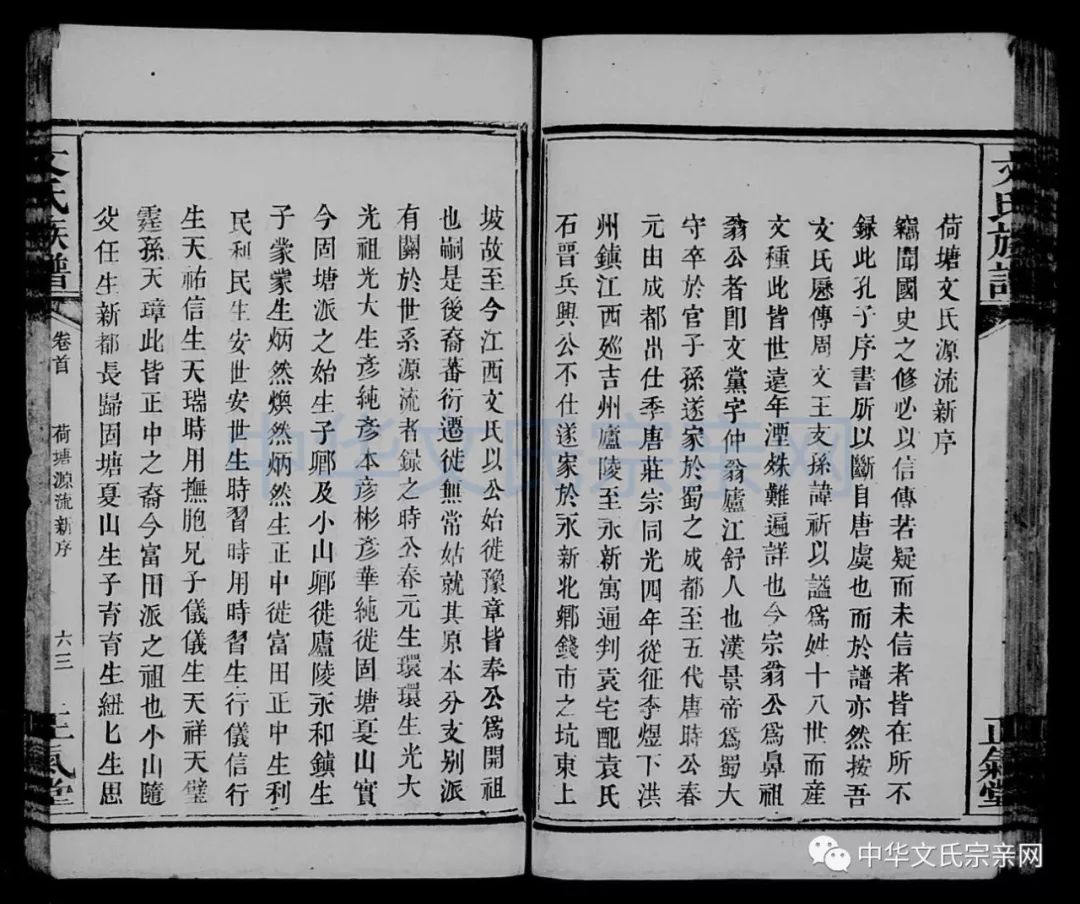 文氏族譜
正氣堂
荷塘文氏源流新序
竊聞國史之修必以信傳若疑而未信者皆在所不
録此孔子序書所以斷自唐虞也而於譜亦然按吾
文氏歷傳周文王支孫諱祈以謚爲姓十八世而産
文種此皆世遠年湮姝難遍詳也今宗翁公爲鼻祖
翁公者卽文黨字仲翁廬江舒人也漢景帝爲蜀大
守卒於官子孫遂家於蜀之成都至五代唐時公春
元由成都出仕季唐莊宗同光四年從征李煜下洪
州鎮江西廵吉州廬陵至永新寓通判袁宅配袁氏
石晋兵興公不仕遂家於永新北鄉錢市之坑東上
坡故至今江西文氏以公始徙豫章皆奉公爲開祖
也嗣是後裔蕃衍遷徙無常姑就其原本分支别派
有關於世系源流者録之時公春元生環環生光大
光祖光大生彥純彥本彥彬彥華純徙固塘夏山實
今固塘派之始生子卿及小山卿徙廬陵永和鎮生
子蒙蒙生炳然煥然炳然生正中徙富田正中生利
民利民生安世安世生時習時用時習生行儀信行
生天祐信生天瑞時用撫胞兄子儀儀生天祥天璧
霆孫天璋此皆正中之裔今富田派之祖也小山隨
父任生新都長歸固塘夏山生子育育生紐匕生思
文氏族譜
卷首
荷塘源流新序
六三
正氣堂
中华文氏宗亲网
中华文氏宗亲网